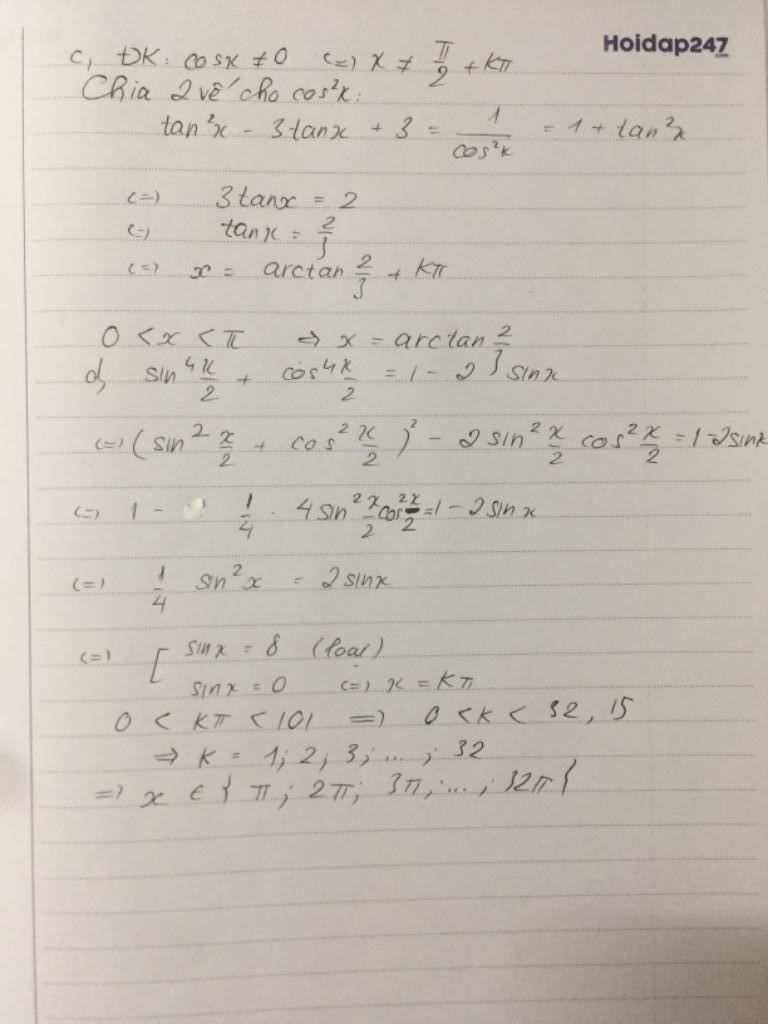 Hoidap247
c, ĐK: cosx ≠ 0 (=) x ≠ π/2 + kπ
Chia 2 vế cho cos²x:
tan²x - 3tanx + 3 = 1/cos²x = 1 + tan²x
(=) 3tanx = 2
(=) tanx = 2/3
(=) x = arctan 2/3 + kπ
0 < x < π => x = arctan 2/3
d, sin⁴ x/2 + cos⁴ x/2 = 1 - 2 sinx
(=) (sin² x/2 + cos² x/2)² - 2 sin² x/2 cos² x/2 = 1 - 2sinx
(=) 1 - 1/4 . 4 sin² x/2 cos² x/2 = 1 - 2 sinx
(=) 1/4 sin²x = 2 sinx
(=) [ sinx = 8 (loại)
sinx = 0 (=) x = kπ
0 < kπ < 101 => 0 < k < 32,15
=> k = 1; 2; 3; ...; 32
=> x ∈ { π; 2π; 3π; ...; 32π }